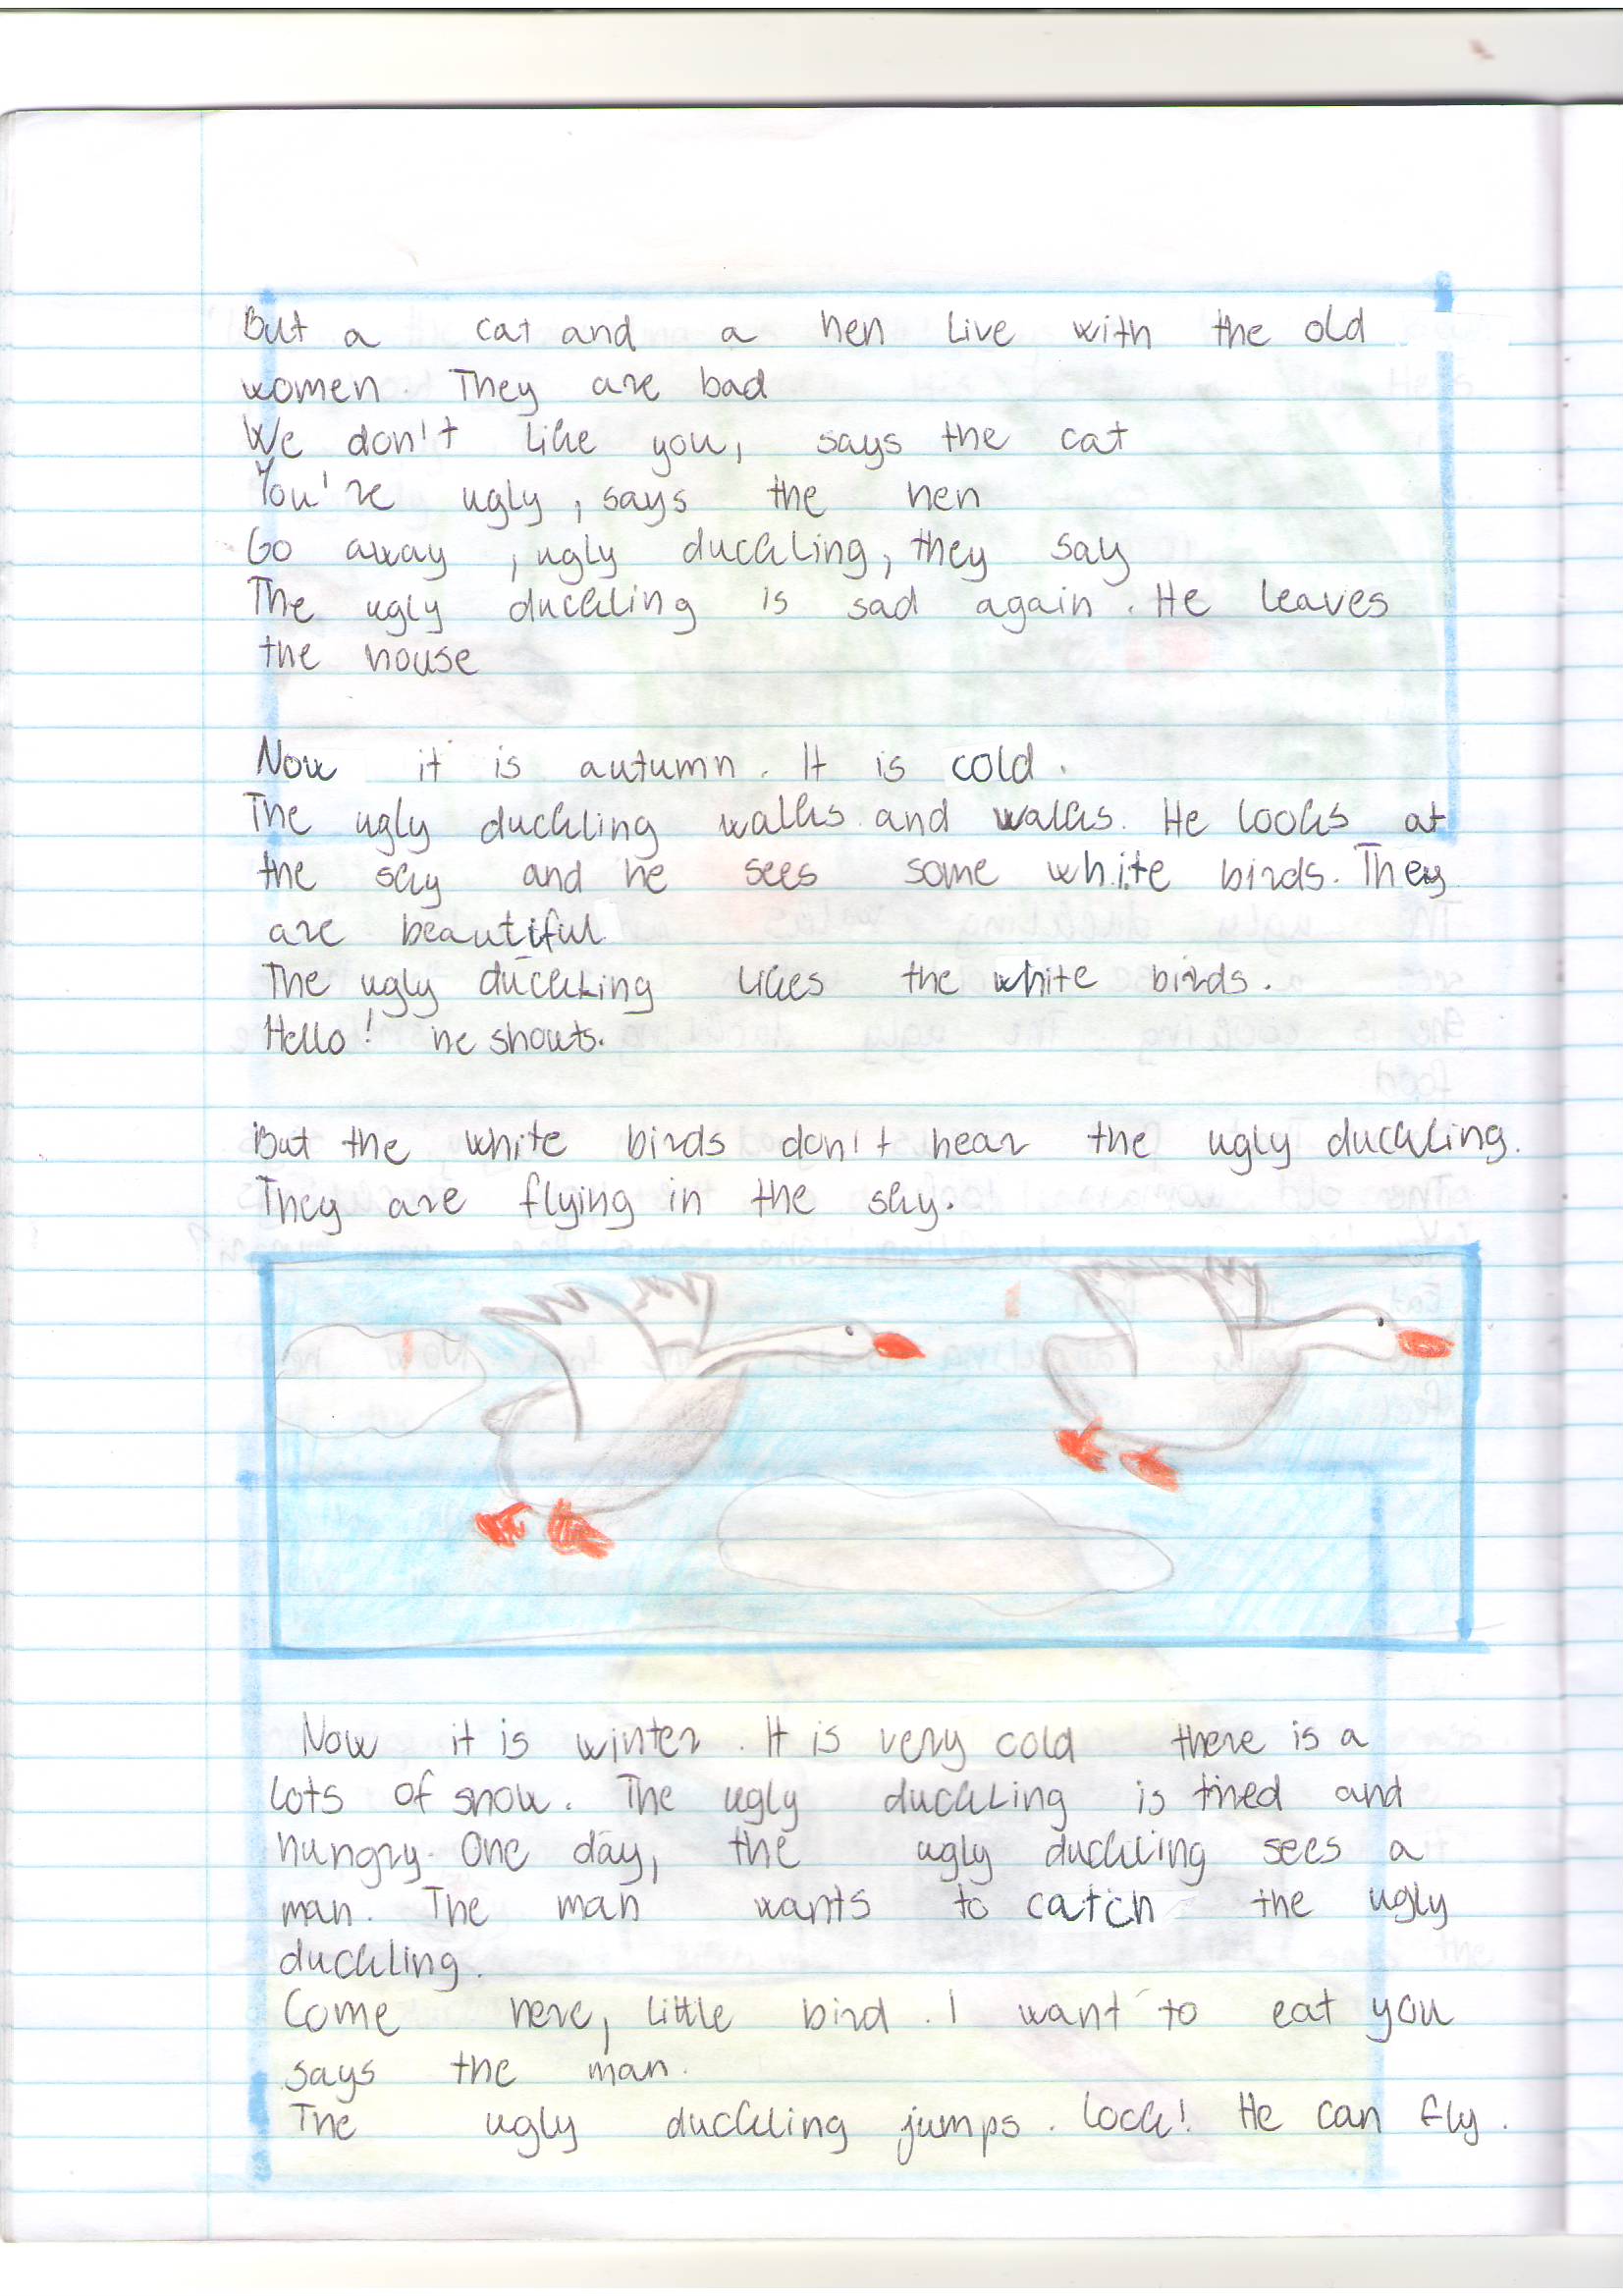 But a cat and a hen live with the old
women. They are bad
We don't like you, says the cat
You're ugly, says the hen
Go away, ugly duckling, they say
The ugly duckling is sad again. He leaves
the house
Now it is autumn. It is cold.
The ugly duckling walks and walks. He looks at
the sky and he sees some white birds. They
are beautiful
The ugly duckling likes the white birds.
Hello! he shouts.
But the white birds don't hear the ugly duckling.
They are flying in the sky.
Now it is winter. It is very cold there is a
lots of snow. The ugly duckling is tired and
hungry. One day, the ugly duckling sees a
man. The man wants to catch the ugly
duckling.
Come here, little bird. I want to eat you
says the man.
The ugly duckling jumps. Look! He can fly.